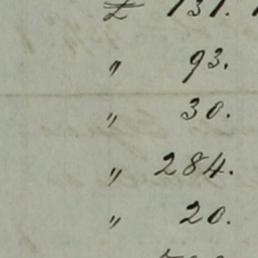 £ 131.
" 93.
" 30.
" 284.
" 20.